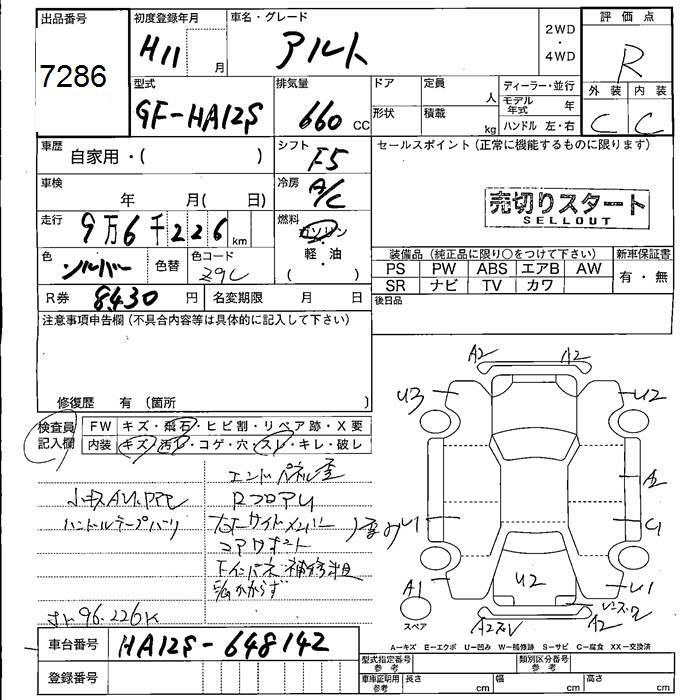 出品番号 初度登録年月 車名・グレード 評価点
7286 H11 月 アルト 2WD・4WD R
型式 排気量 ドア 定員 人 ディーラー・並行 外装 内装
GF-HA12S 660 CC 形状 積載 kg モデル年式 年 C C
ハンドル 左・右
車歴 自家用・( ) シフト F5 セールスポイント(正常に機能するものに限ります)
車検 年 月( 日) 冷房 A/C
売切りスタート
SELLOUT
走行 9万6千226km 燃料 ガソリン・軽油( )
色 シルバー 色替 カラーコード Z9L
装備品(純正品に限り○をつけて下さい) 新車保証書
PS PW ABS エアB AW 有・無
SR ナビ TV カワ
R券 8430円 名変期限 月 日 後日品
注意事項申告欄(不具合内容等は具体的に記入して下さい)
修復歴 有 〔箇所 〕
A2 A2
U3 U2
検査員記入欄 FW キズ・飛石・ヒビ割・リペア跡・X要
内装 キズ・汚レ・コゲ・穴・スレ・キレ・破レ
エンドパネル歪
小キズAU、PPL RフロアU
A2
ハンドルテープパリ 右Fサイドメンバー
U1 C1
コアサポート
下インパネ補修粗
U2
A1 U1
スペア A2 A2
オト 96.226K
車台番号 HA12S-648142
A-キズ E-エクボ U-凹み W-補修跡 S-サビ C-腐食 XX-交換済
登録番号
型式指定番号参考 類別区分番号参考
車庫証明用参考 長さ cm 幅 cm 高さ cm